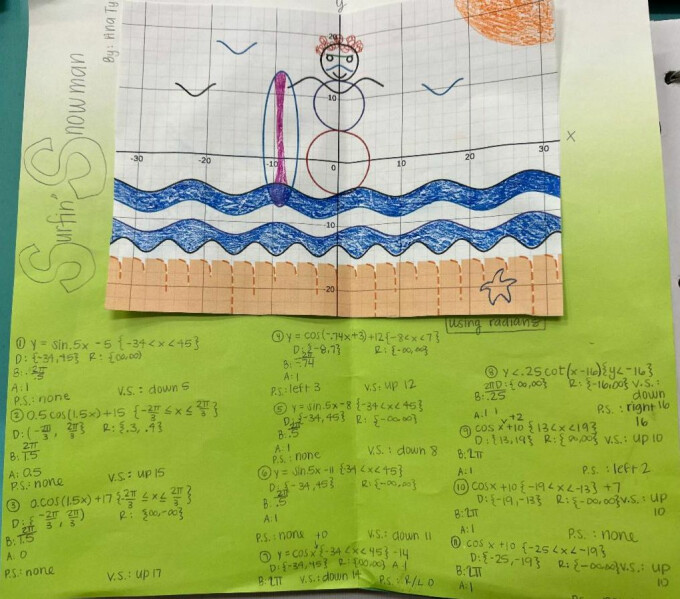 Surfin' Snowman
By: Ana Ty
y
x
20
10
0
-10
-20
-30
-20
-10
10
20
30
using radians
① y = sin.5x - 5 {-34 < x < 45}
D: {-34, 45} R: {∞,∞}
B: 2π/.5
A: 1
P.S.: none V.S.: down 5
② 0.5cos(1.5x)+15 {-2π/3 ≤ x ≤ 2π/3}
D: {-2π/3, 2π/3} R: {.3, .4}
B: 2π/1.5
A: 0.5
P.S.: none V.S.: up 15
③ 0.cos(1.5x)+17 {-2π/3 ≤ x ≤ 2π/3}
D: {-2π/3, 2π/3} R: {∞,-∞}
B: 2π/1.5
A: 0
P.S.: none V.S.: up 17
④ y = cos(-.74x+3)+12 {-8<x<7}
D: {-8,7} R: {-∞,∞}
B: 2π/-.74
A: 1
P.S: left 3 V.S: up 12
⑤ y = sin.5x-8 {-34<x<45}
D: {-34, 45} R: {-∞,∞}
B: 2π/.5
A: 1
P.S.: none V.S.: down 8
⑥ y = sin.5x-11 {-34<x<45}
D: {-34, 45} R: {-∞,∞}
B: 2π/.5
A: 1
P.S.: none V.S.: down 11
⑦ y = cosx+0 {-34<x<45} -14
D: {-34, 45} R: {∞,∞} A 1
B: 2π V.S.: down 14 P.S.: R/L 0
⑧ y<.25cot(x-16){y<-16}
D: {∞,∞} R: {-16,∞} V.S.: down 16
B: 2π/.25
A: 1 P.S.: right 16
⑨ cosx+2+10 {13<x<19}
D: {13,19} R: {∞,∞} V.S: up 10
B: 2π
A: 1 P.S.: left 2
⑩ cosx+10 {-19<x<-13} +7
D: {-19,-13} R: {-∞,∞} V.S.: up 10
B: 2π
A: 1 P.S.: none
⑪ cosx+10 {-25<x<-19}
D: {-25,-19} R: {-∞,∞} V.S.: up 10
B: 2π
A: 1